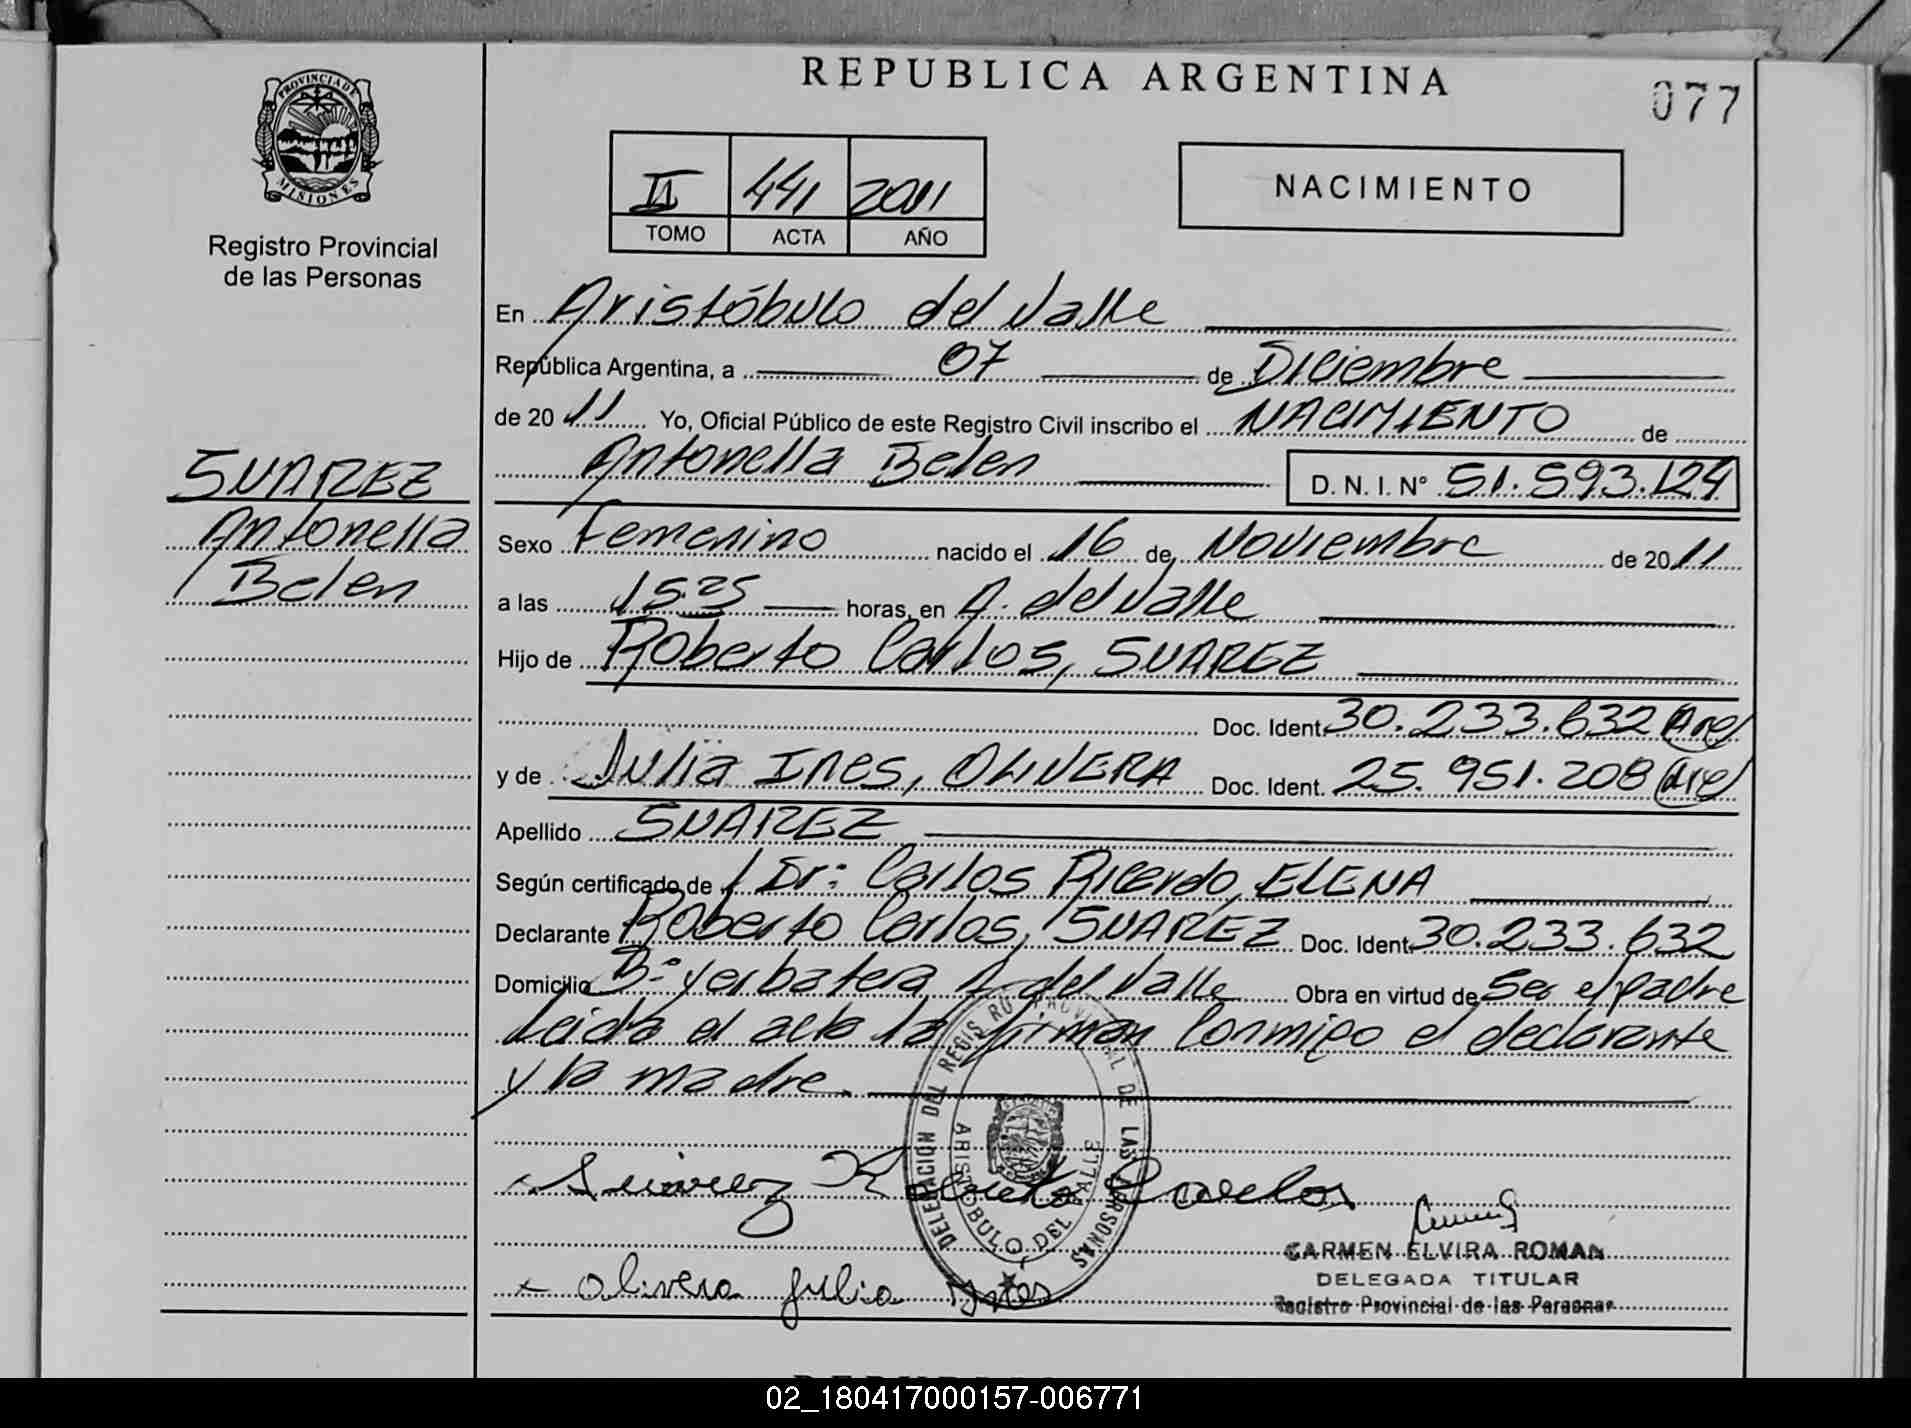 REPUBLICA ARGENTINA
077
PROVINCIA DE
MISIONES
Registro Provincial
de las Personas
II 441 2011
TOMO ACTA AÑO
NACIMIENTO
En Aristóbulo del Valle
República Argentina, a 07 de Diciembre
de 2011 Yo, Oficial Público de este Registro Civil inscribo el NACIMIENTO de
Antonella Belen D. N. I. N° 51.593.124
SUAREZ
Antonella
Belen
Sexo Femenino nacido el 16 de Noviembre de 2011
a las 15:25 horas, en A. del Valle
Hijo de Roberto Carlos, SUAREZ
Doc. Ident. 30.233.632 Arg
y de Julia Ines, OLIVERA Doc. Ident. 25.951.208 Arg
Apellido SUAREZ
Según certificado de Dr: Carlos Ricardo, ELENA
Declarante Roberto Carlos, SUAREZ Doc. Ident. 30.233.632
Domicilio B° Yerbatera A. del Valle Obra en virtud de Ser el padre
Leida el acta la firman Conmigo el declarante
y la madre.
DELEGACIÓN DEL REGISTRO PROVINCIAL DE LAS PERSONAS
ARISTOBULO DEL VALLE
x Suarez Roberto Carlos
x Olivera Julia Ines
CARMEN ELVIRA ROMAN
DELEGADA TITULAR
Registro Provincial de las Personas
02_180417000157-006771